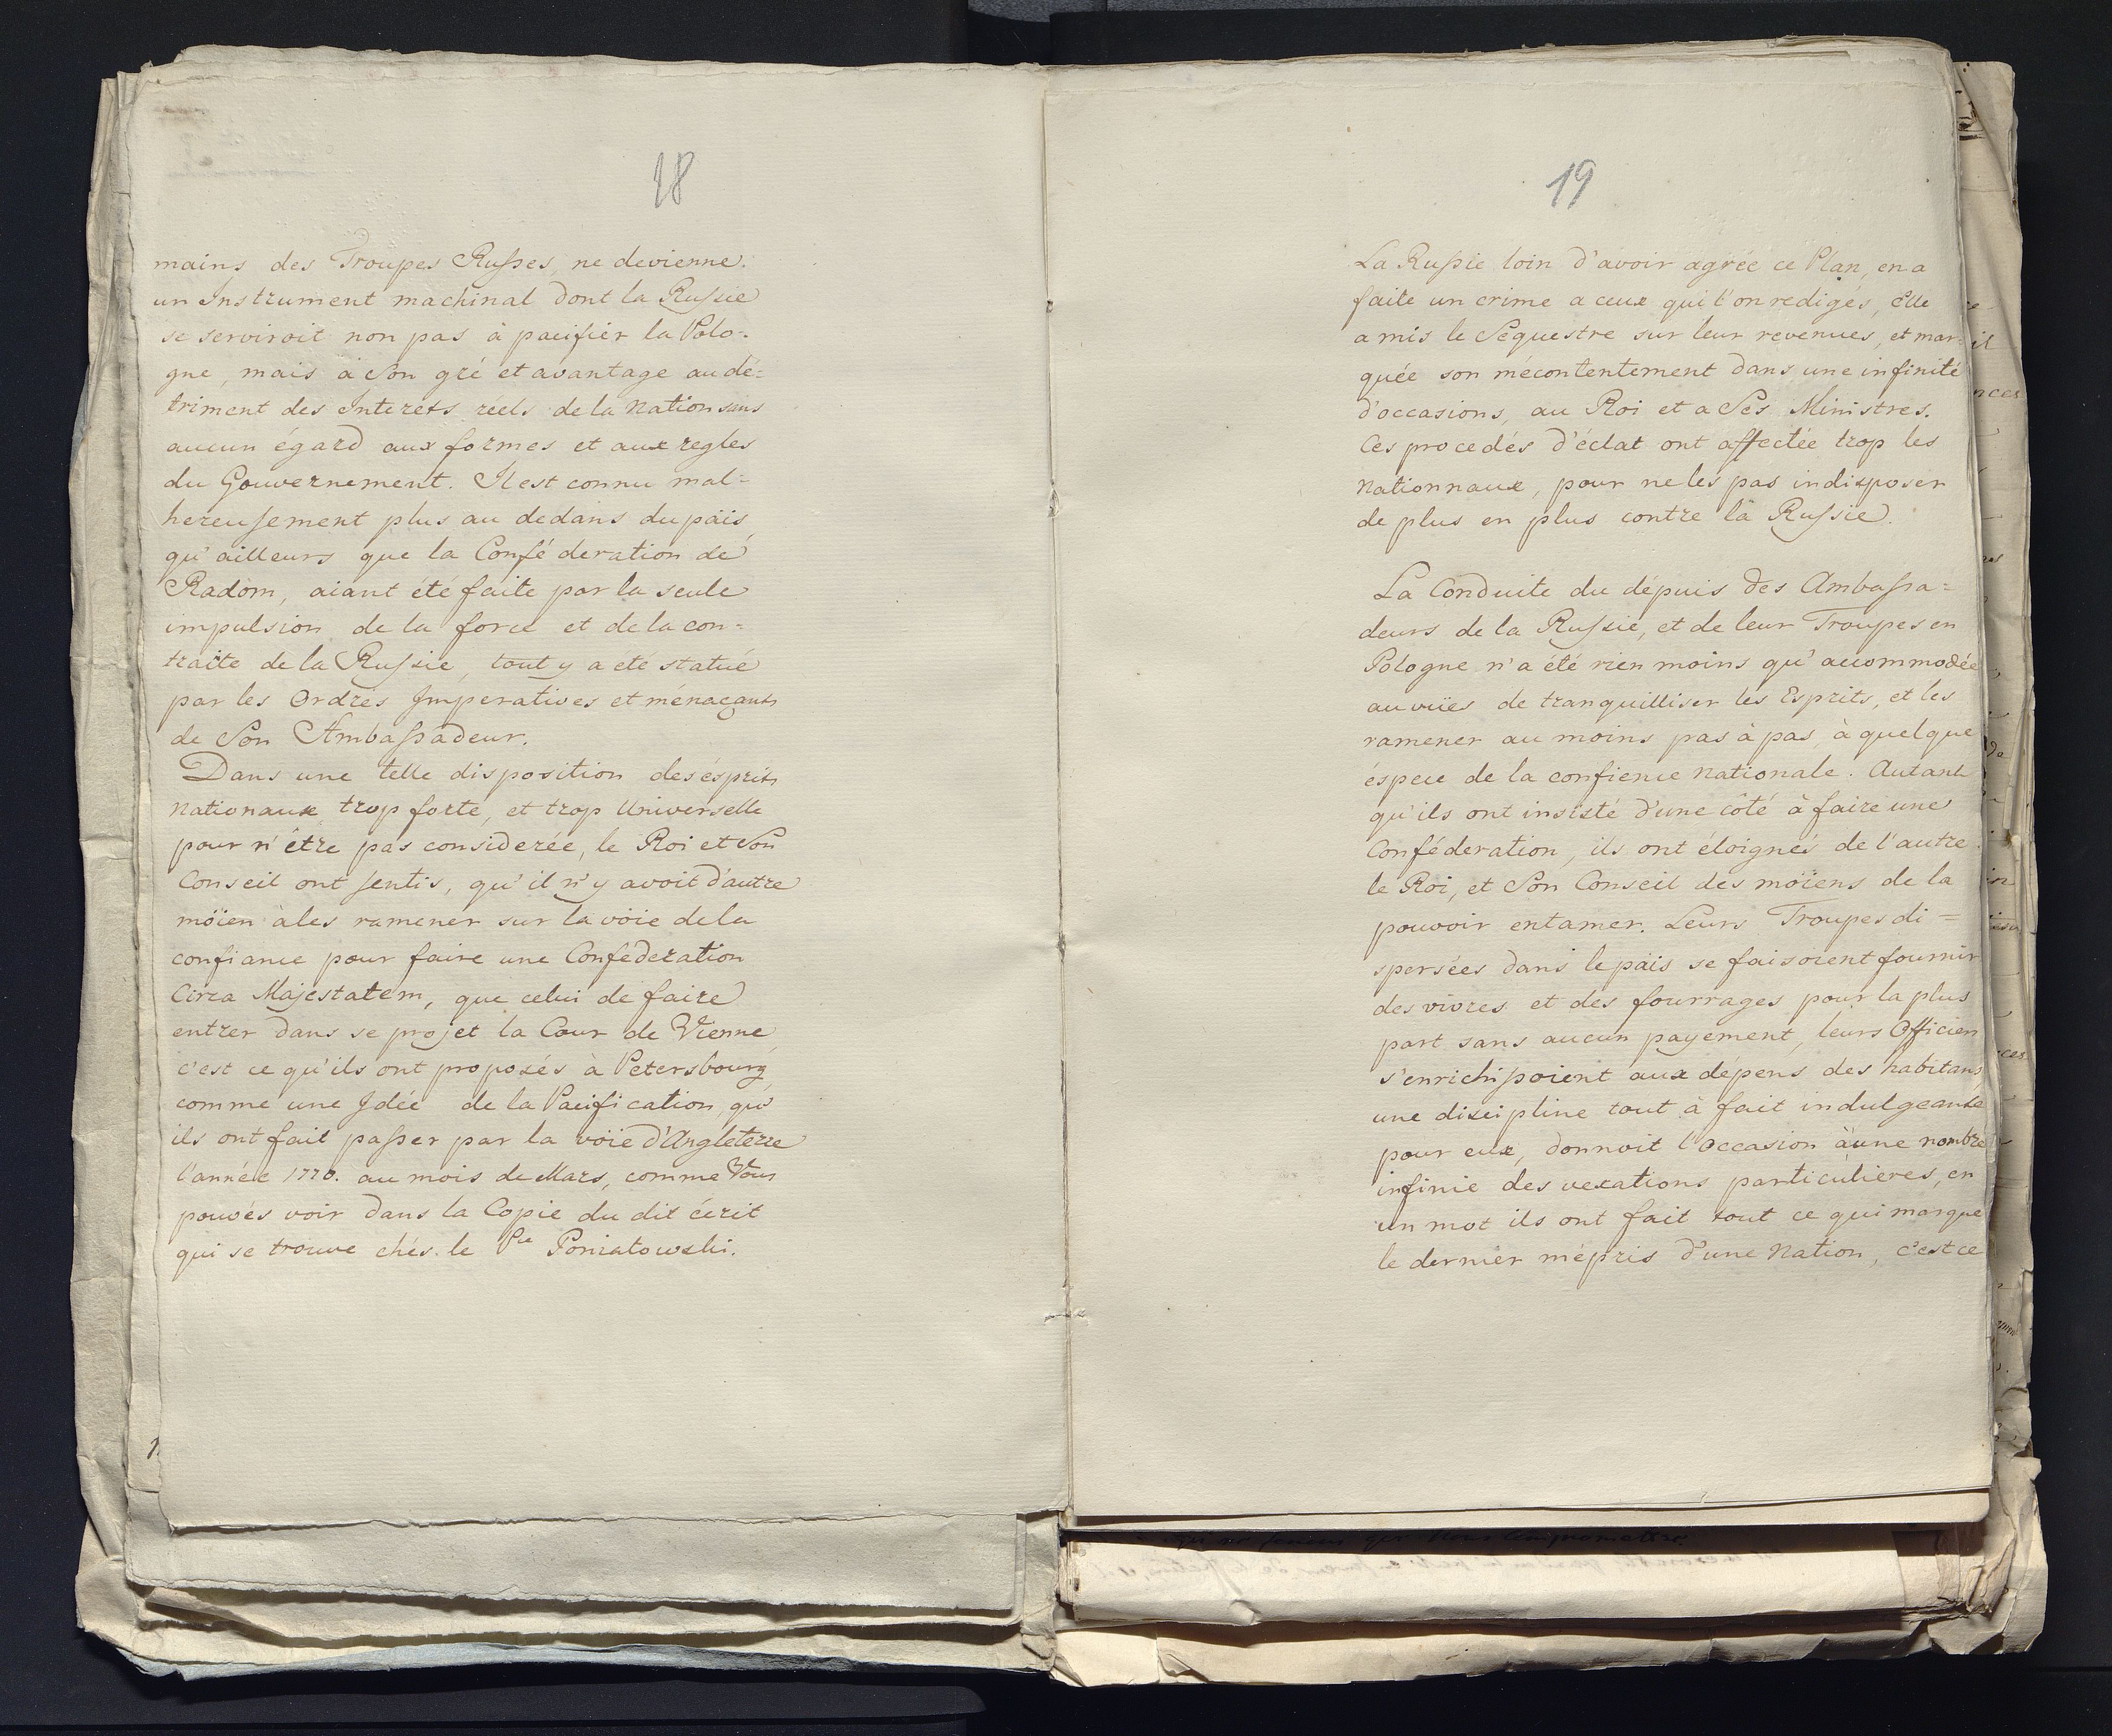 18
mains des Troupes Russes, ne devienne.
un Instrument machinal dont la Russie
se serviroit non pas à pacifiér la Polo-
gne, mais à Son gré et avantage au dé-
triment des Interets réels de la Nation sans
aucun égard aux formes et aux regles
du Gouvernement. Il est connu mal-
hereusement plus au dedans du païs
qu'ailleurs que la Conféderation de
Radom, aiant été faite par la seule
impulsion de la force et de la con-
traite de la Russie, tout y a été statué
par les Ordres Imperatives et ménaçants
de Son Ambassadeur.
Dans une telle disposition des ésprits
Nationaux trop forte, et trop Universelle
pour n'étre pas considerée, le Roi et Son
Conseil ont sentis, qu'il n'y avoit d'autre
moïen à les ramener sur la voïe de la
confiance pour faire une Confederation
Circa Majestatem, que celui de faire
entrer dans se projet la Cour de Vienne,
c'est ce qu'ils ont proposés à Petersbourg
comme une Idée de la Pacification, qu'
ils ont fait passer par la voïe d'Angleterre
l'année 1770. au mois de Mars, comme Vous
pouvés voir dans la Copie du dit écrit
qui se trouve chés le Pce Poniatowski.
19
La Russie loin d'avoir agréé ce Plan, en a
faite un crime a ceux qui l'on redigés, Elle
a mis le Séquestre sur leur revenues, et mar-
quée son mécontentement dans une infinité
d'occasions, au Roi et a Ses Ministres.
Ces procedés d'éclat ont affectée trop les
Nationnaux, pour ne les pas indisposer
de plus en plus contre la Russie.
La Conduite du dépuis des Ambassa-
deurs de la Russie, et de leur Troupes en
Pologne n'a été rien moins qu'accommodée
au vuës de tranquilliser les Esprits, et les
ramener au moins pas à pas à quelque
éspece de la confience Nationale. Autant
qu'ils ont insisté d'une côté à faire une
Conféderation, ils ont éloignés de l'autre
le Roi, et Son Conseil des moïens de la
pouvoir entamer. Leurs Troupes di-
spersées dans le païs se faisoient fournir
des vivres et des fourrages pour la plus
part sans aucun payement, leurs Officiers
s'enrichissoient aux dépens des habitans,
une discipline tout à fait indulgeante
pour eux, donnoit l'Occasion à une nombre
infinie des vexations particulieres, en
un mot ils ont fait tout ce qui marque
le dernier mépris d'une Nation, c'est ce